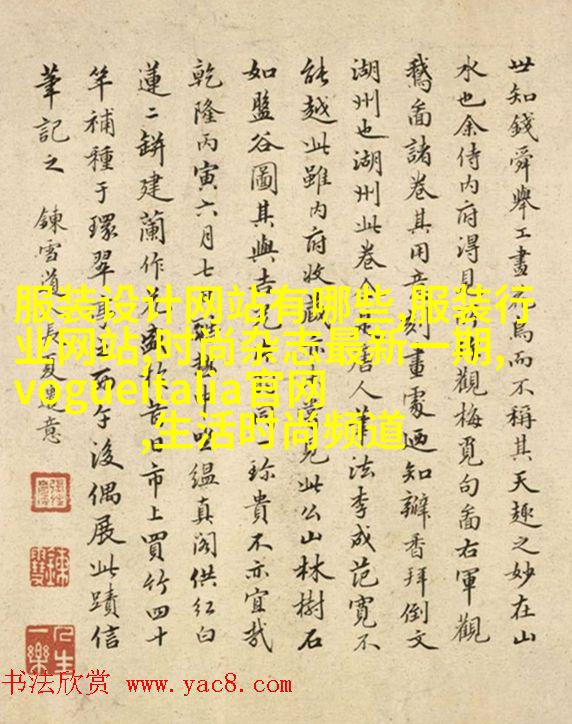 世知錢舜舉工畫花鳥而不稱其天趣之妙在山
水也余侍内府得見觀梅覓句圖右軍觀
鵝圖諸卷其用意刻畫處迺知辦香拜倒文
湖州也湖州此卷人法李成范寬不
能越此雖内府收藏亦見此公山林樹石
如盤谷圖其與珍貴不亦宜哉
乾隆丙寅六月七日縕真閣供紅白
蓮二缾建蘭作市上買竹四十
竿補種于環翠下午後偶展此蹟信
筆記之 鍊雪道長意
服装设计网站有哪些,服装行
业网站,时尚杂志最新一期,
vogueitalia官网
,生活时尚频道
人生一樂
书法欣赏 www.yac8.com